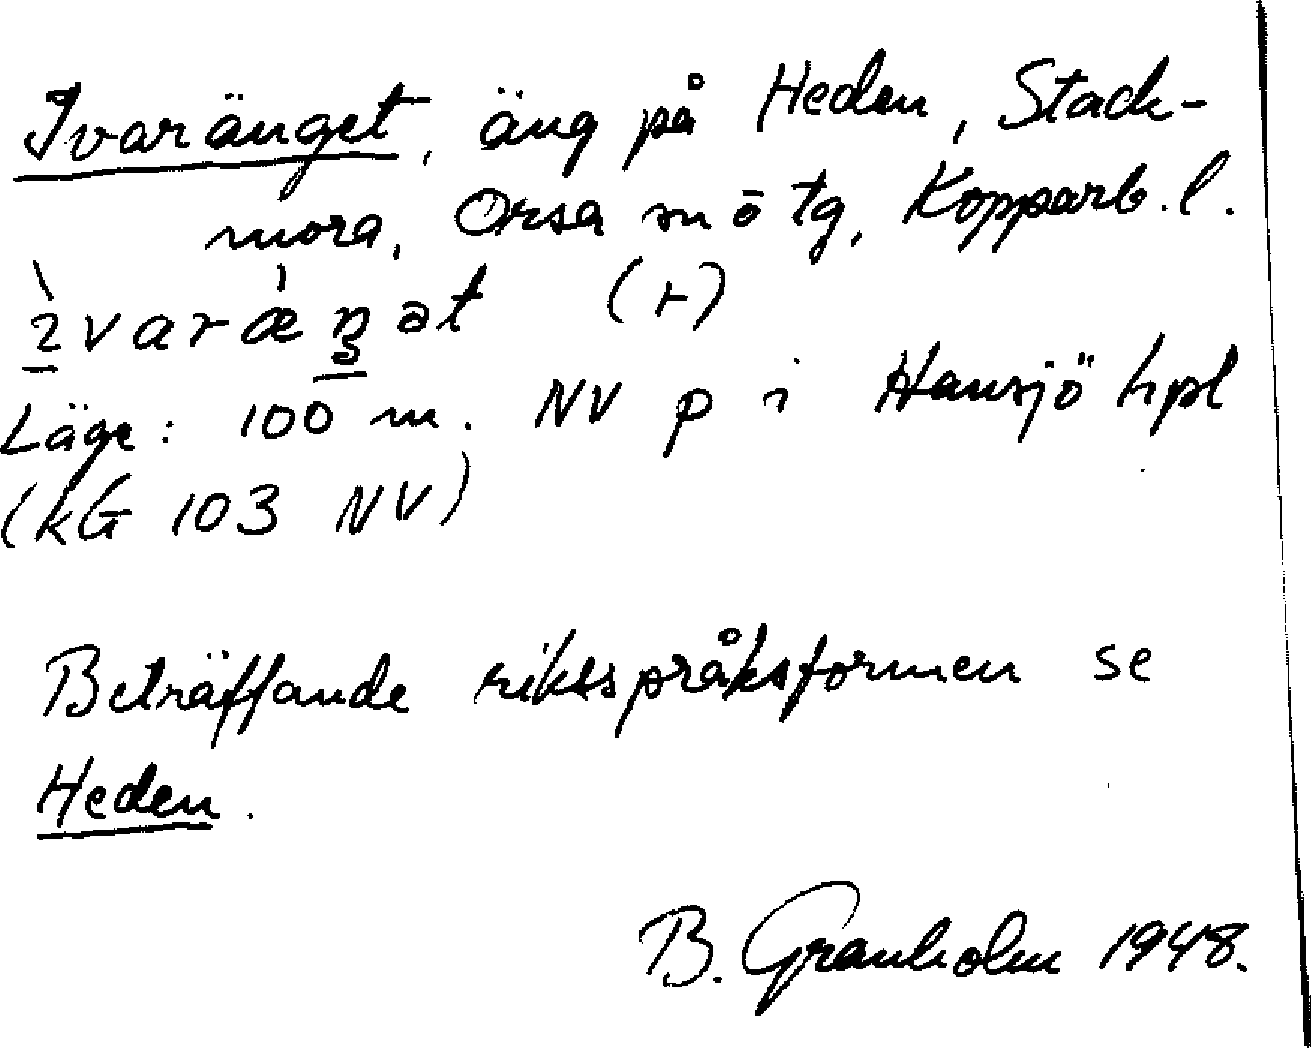 Ivaränget, äng på Heden, Stack-
mora, Orsa sn o tg, Kopparb. l.
(+)
Läge: 100 m. NV p i Hansjö hpl
(kG 103 NV)
Beträffande riksspråksformen se
Heden.
B. Granholm 1948.